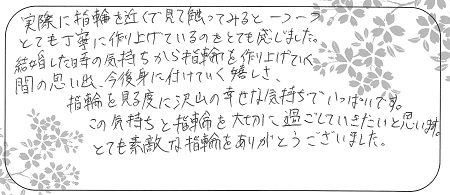 実際に指輪を近くで見て触ってみると一つ一つ
とても丁寧に作り上げているのをとても感じました。
結婚した時の気持ちから指輪を作り上げていく
間の思い出、今後身に付けていく嬉しさ、
指輪を見る度に沢山の幸せな気持ちでいっぱいです。
この気持ちと指輪を大切に過ごしていきたいと思います。
とても素敵な指輪をありがとうございました。